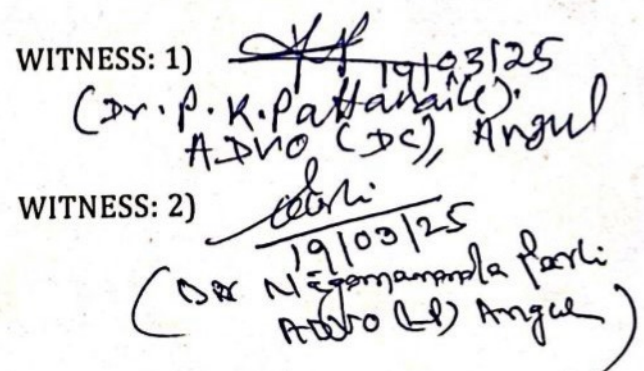 WITNESS: 1)
19/03/25
(Dr. P. K. Pattanaik).
ADVO (DC), Angul
WITNESS: 2)
19/03/25
(Dr Nigamananda
ADVO Angul)